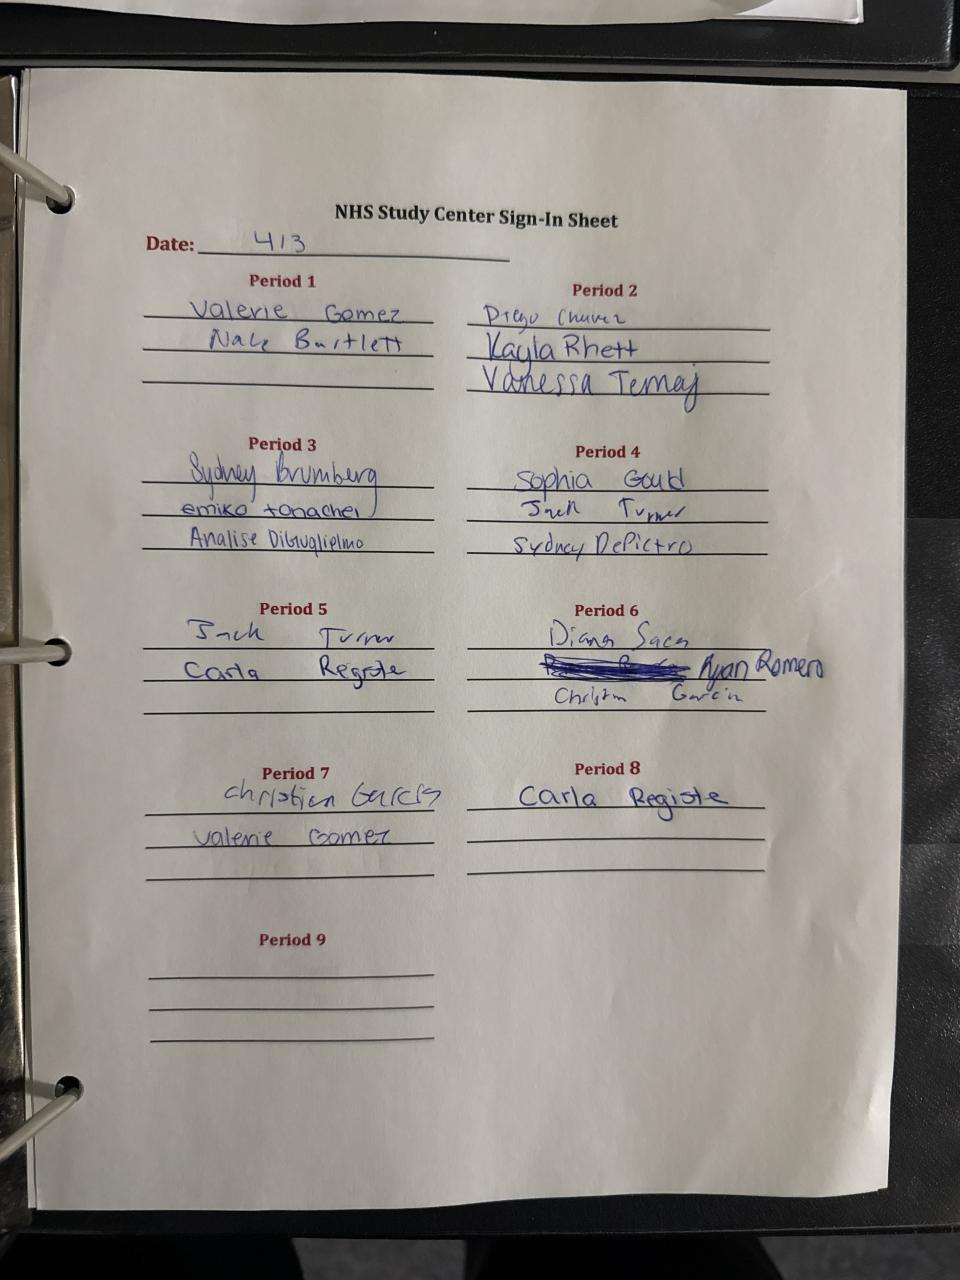 NHS Study Center Sign-In Sheet
Date: 413
Period 1
Valerie Gomez
Nate Bartlett
Period 2
Diego Chavez
Kayla Rhett
Vanessa Temaj
Period 3
Sydney Brumberg
emiko tonacher
Analise DiGuglielmo
Period 4
Sophia Gould
Jack Turner
Sydney DePietro
Period 5
Jack Turner
Carla Registe
Period 6
Diana Saca
Ryan Romero
Christian Garcia
Period 7
Christian Garcia
Valerie Gomez
Period 8
Carla Registe
Period 9